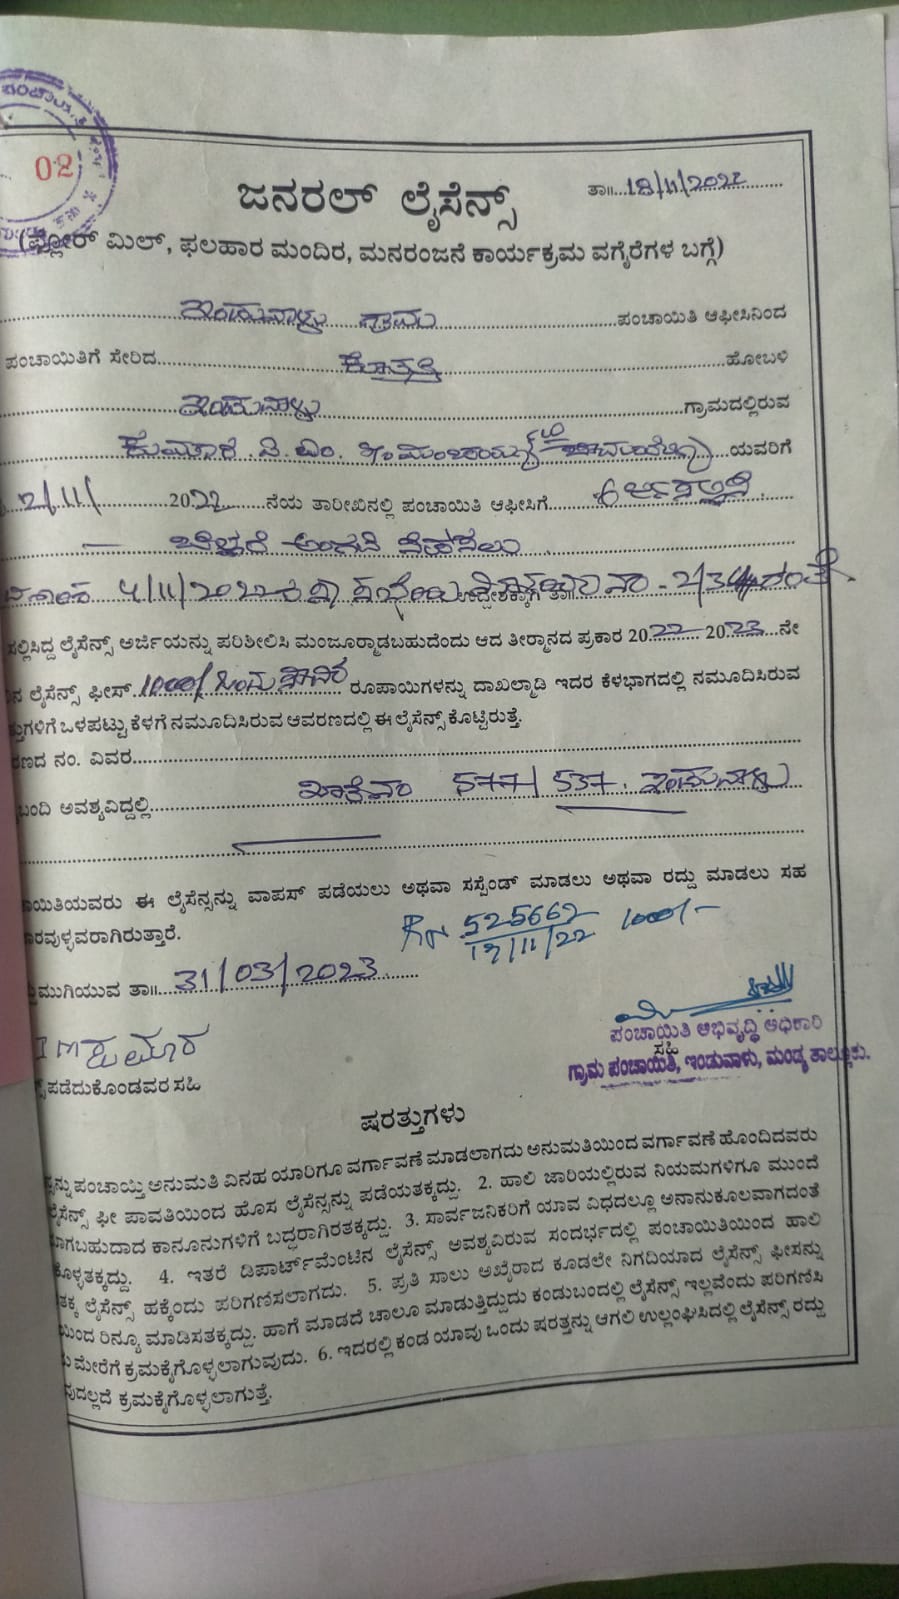 02
ಜನರಲ್ ಲೈಸೆನ್ಸ್
ತಾ॥ 18/11/2022
(ಫ್ಲೋರ್ ಮಿಲ್, ಫಲಹಾರ ಮಂದಿರ, ಮನರಂಜನೆ ಕಾರ್ಯಕ್ರಮ ವಗೈರೆಗಳ ಬಗ್ಗೆ)
ಇಂಡುವಾಳು ಗ್ರಾಮ ಪಂಚಾಯಿತಿ ಆಫೀಸಿನಿಂದ
ಪಂಚಾಯಿತಿಗೆ ಸೇರಿದ ಕೊತ್ತತ್ತಿ ಹೋಬಳಿ
ಇಂಡುವಾಳು ಗ್ರಾಮದಲ್ಲಿರುವ
ಕುಮಾರ ಯವರಿಗೆ
2/11/ 2022 ನೆಯ ತಾರೀಖಿನಲ್ಲಿ ಪಂಚಾಯಿತಿ ಆಫೀಸಿಗೆ
ಚಿಲ್ಲರೆ ಅಂಗಡಿ
4/11/2022 ಉದ್ದೇಶಕ್ಕಾಗಿ ತಾ॥
ಸಲ್ಲಿಸಿದ್ದ ಲೈಸೆನ್ಸ್ ಅರ್ಜಿಯನ್ನು ಪರಿಶೀಲಿಸಿ ಮಂಜೂರ್ಮಾಡಬಹುದೆಂದು ಆದ ತೀರ್ಮಾನದ ಪ್ರಕಾರ 2022 2023 ನೇ
ಲೈಸೆನ್ಸ್ ಫೀಸ್ 1000/ ಒಂದು ಸಾವಿರ ರೂಪಾಯಿಗಳನ್ನು ದಾಖಲ್ಮಾಡಿ ಇದರ ಕೆಳಭಾಗದಲ್ಲಿ ನಮೂದಿಸಿರುವ
ತ್ತುಗಳಿಗೆ ಒಳಪಟ್ಟು ಕೆಳಗೆ ನಮೂದಿಸಿರುವ ಆವರಣದಲ್ಲಿ ಈ ಲೈಸೆನ್ಸ್ ಕೊಟ್ಟಿರುತ್ತೆ.
ರಣದ ನಂ. ವಿವರ
ಬಂದಿ ಅವಶ್ಯವಿದ್ದಲ್ಲಿ ಖಾತೆ ನಂ 577/537. ಇಂಡುವಾಳು
ಾಯಿತಿಯವರು ಈ ಲೈಸೆನ್ಸನ್ನು ವಾಪಸ್ ಪಡೆಯಲು ಅಥವಾ ಸಸ್ಪೆಂಡ್ ಮಾಡಲು ಅಥವಾ ರದ್ದು ಮಾಡಲು ಸಹ
ಾರವುಳ್ಳವರಾಗಿರುತ್ತಾರೆ.
525662 1000/-
17/11/22
ಮುಗಿಯುವ ತಾ॥ 31/03/2023
ಕುಮಾರ
ಪಂಚಾಯಿತಿ ಅಭಿವೃದ್ಧಿ ಅಧಿಕಾರಿ
ಸಹಿ
ಗ್ರಾಮ ಪಂಚಾಯಿತಿ, ಇಂಡುವಾಳು, ಮಂಡ್ಯ ತಾಲ್ಲೂಕು.
ಪಡೆದುಕೊಂಡವರ ಸಹಿ
ಷರತ್ತುಗಳು
ನ್ನು ಪಂಚಾಯ್ತಿ ಅನುಮತಿ ವಿನಹ ಯಾರಿಗೂ ವರ್ಗಾವಣೆ ಮಾಡಲಾಗದು ಅನುಮತಿಯಿಂದ ವರ್ಗಾವಣೆ ಹೊಂದಿದವರು
ಲೈಸೆನ್ಸ್ ಫೀ ಪಾವತಿಯಿಂದ ಹೊಸ ಲೈಸೆನ್ಸನ್ನು ಪಡೆಯತಕ್ಕದ್ದು. 2. ಹಾಲಿ ಜಾರಿಯಲ್ಲಿರುವ ನಿಯಮಗಳಿಗೂ ಮುಂದೆ
ಾಗಬಹುದಾದ ಕಾನೂನುಗಳಿಗೆ ಬದ್ಧರಾಗಿರತಕ್ಕದ್ದು. 3. ಸಾರ್ವಜನಿಕರಿಗೆ ಯಾವ ವಿಧದಲ್ಲೂ ಅನಾನುಕೂಲವಾಗದಂತೆ
ಕೊಳ್ಳತಕ್ಕದ್ದು. 4. ಇತರೆ ಡಿಪಾರ್ಟ್‌ಮೆಂಟಿನ ಲೈಸೆನ್ಸ್ ಅವಶ್ಯವಿರುವ ಸಂದರ್ಭದಲ್ಲಿ ಪಂಚಾಯಿತಿಯಿಂದ ಹಾಲಿ
ತಕ್ಕ ಲೈಸೆನ್ಸ್ ಹಕ್ಕೆಂದು ಪರಿಗಣಿಸಲಾಗದು. 5. ಪ್ರತಿ ಸಾಲು ಅಖೈರಾದ ಕೂಡಲೇ ನಿಗದಿಯಾದ ಲೈಸೆನ್ಸ್ ಫೀಸನ್ನು
ಯಿಂದ ರಿನ್ಯೂ ಮಾಡಿಸತಕ್ಕದ್ದು. ಹಾಗೆ ಮಾಡದೆ ಚಾಲೂ ಮಾಡುತ್ತಿದ್ದುದು ಕಂಡುಬಂದಲ್ಲಿ ಲೈಸೆನ್ಸ್ ಇಲ್ಲವೆಂದು ಪರಿಗಣಿಸಿ
ಮೇರೆಗೆ ಕ್ರಮಕೈಗೊಳ್ಳಲಾಗುವುದು. 6. ಇದರಲ್ಲಿ ಕಂಡ ಯಾವು ಒಂದು ಷರತ್ತನ್ನು ಆಗಲಿ ಉಲ್ಲಂಘಿಸಿದಲ್ಲಿ ಲೈಸೆನ್ಸ್ ರದ್ದು
ವುದಲ್ಲದೆ ಕ್ರಮಕೈಗೊಳ್ಳಲಾಗುತ್ತೆ.